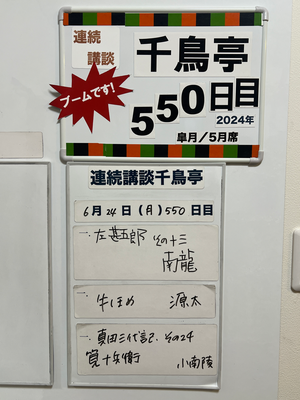 連続
講談
千鳥亭
ブームです!
550日目
2024年
皐月/5月席
連続講談千鳥亭
6月24日(月)550日目
一、左甚五郎 その十三
南龍
一、牛ほめ 源太
一、真田三代記、その24
筧十兵衛 小南陵